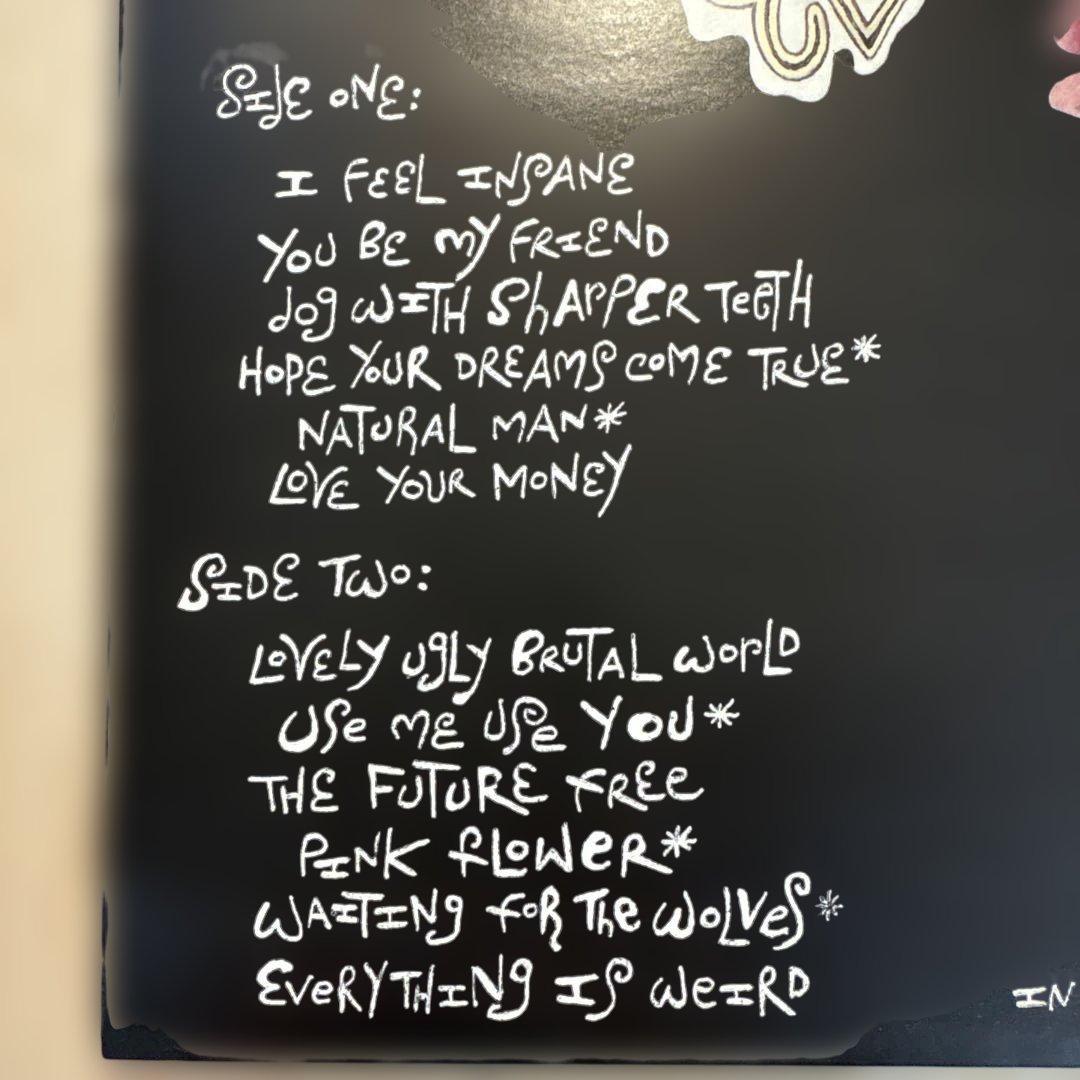 SIDE ONE:
I FEEL INSANE
YOU BE MY FRIEND
dog WITH ShArPPER TeeTH
HOPE YOUR DREAMS COME TRUE*
NATURAL MAN*
LOVE YOUR MONEY
SIDE TWO:
LOVELY UgLY BRUTAL WorLD
USe ME USe YOU*
THE FUTURE FREE
PINK fLOWeR*
WAITING FOR The WOLVeS*
EVeRYTHING IS WEIRD
IN